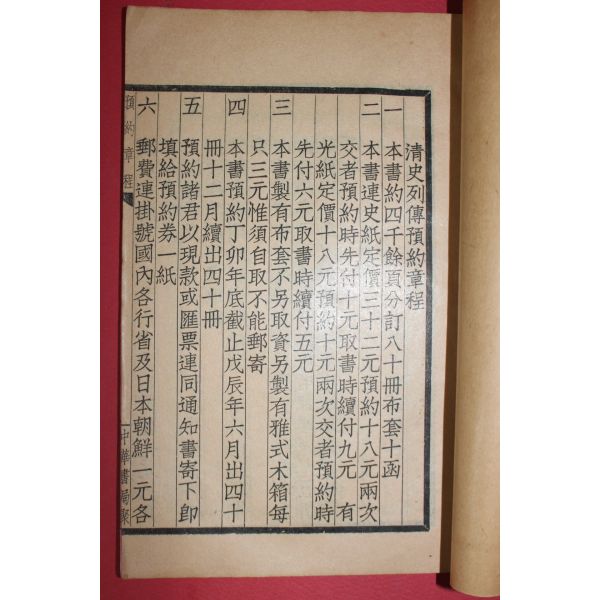 清史列傳預約章程
一　本書約四千餘頁分訂八十冊布套十函
二　本書連史紙定價三十二元預約十八元兩次
交者預約時先付十元取書時續付九元　有
光紙定價十八元預約十元兩次交者預約時
先付六元取書時續付五元
三　本書製有布套不另取資另製有雅式木箱每
只三元惟須自取不能郵寄
四　本書預約丁卯年底截止戊辰年六月出四十
冊十二月續出四十冊
五　預約諸君以現款或匯票連同通知書寄下卽
填給預約券一紙
六　郵費連掛號國內各行省及日本朝鮮一元各
預約章程
一中華書局聚